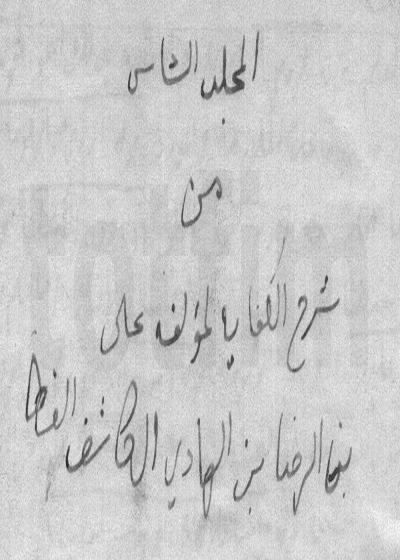 المجلد
من
شرح الكفاية لمؤلفه على
بن الرضا بن الهادي ال كاشف الغطا